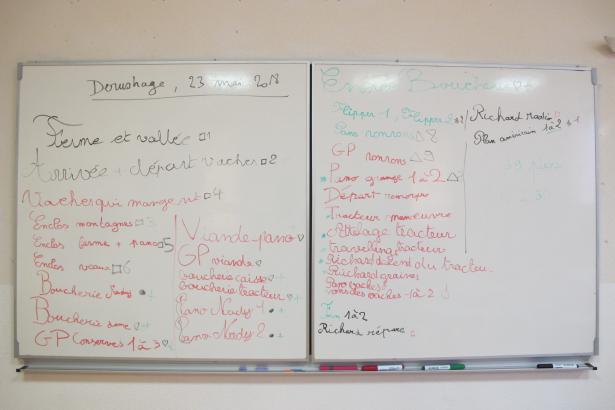 Derushage, 23 mai 2018
Ferme et vallée □1
Arrivée + départ vaches □2
Vaches qui mangent □4
Enclos montagnes □3
Enclos ferme + pano □5
Enclos veaux □6
Boucherie Nady
Boucherie dame ♡+
GP Conserves 1 à 3 ♡
Viande-pano ♡
GP viande
boucherie caisse ♡+
boucherie tracteur ♡+
Pano Nady 1 • +
Pano Nady 2 • +
Flipper-1, Flipper 2
Pano ronrons △ 8
GP ronrons △ 9
Pano grange 1 à 2 △
Départ remorque
Tracteur manœuvre
Attelage tracteur
travelling tracteur
Richard descend du tracteur
Richard graines
Pano vaches
vaches 1-2
1à2
Richard répare
Richard radio
Plan américain 1à2